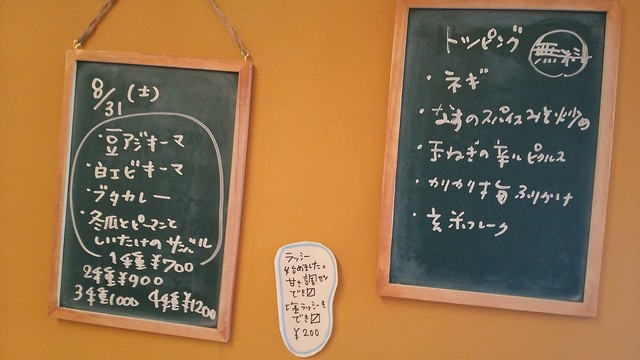 8/31(土)
・豆アジキーマ
・白エビキーマ
・ブタカレー
・冬瓜とピーマンと
しいたけのサンバル
1種¥700
2種¥900
3種1000 4種¥1200
ラッシー
始めました。
甘さ調セツ
でき☑
塩ラッシーも
でき☑
¥200
トッピング 無料
・ネギ
・なすのスパイスみそ炒め
・玉ねぎの辛いピクルス
・カリカリ旨ふりかけ
・玄米フレーク